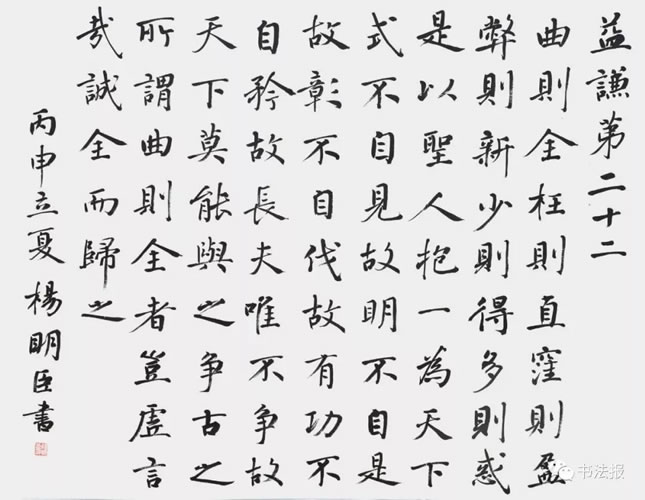 益謙第二十二
曲則全枉則直窪則盈
弊則新少則得多則惑
是以聖人抱一為天下
式不自見故明不自是
故彰不自伐故有功不
自矜故長夫唯不争故
天下莫能與之争古之
所謂曲則全者豈虛言
哉誠全而歸之
丙申立夏楊明臣書
书法报